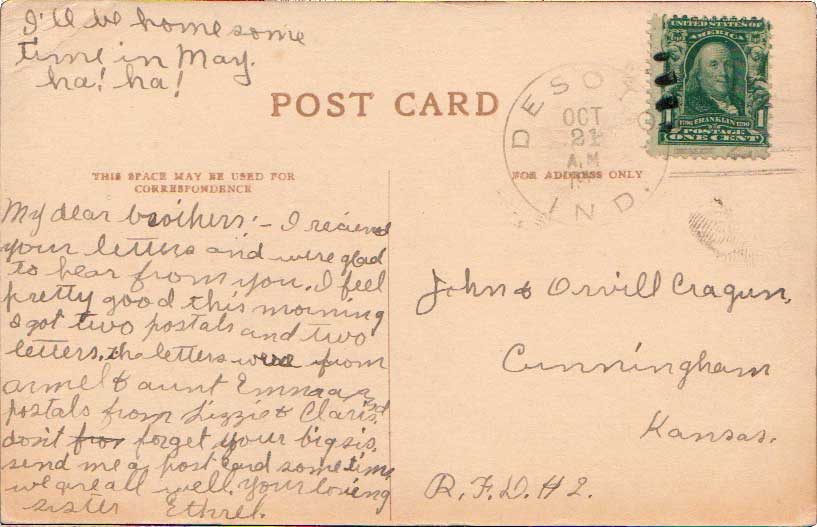 I'll be home some
time in May.
ha! ha!
POST CARD
UNITED STATES OF
AMERICA
1 FRANKLIN 1
POSTAGE
ONE CENT
DESO
OCT
21
A.M
IND.
THIS SPACE MAY BE USED FOR
CORRESPONDENCE
FOR ADDRESS ONLY
My dear brothers:- I recieved
your letters and were glad
to hear from you. I feel
pretty good this morning
I got two postals and two
letters. the letters were from
armel & aunt Emma and
postals from Lizzie & Claris.
don't for forget your big sis.
send me a post card some time
we are all well. your loving
sister Ethrel.
John & Orvill Cragun,
Cunningham
Kansas.
R.F.D. # 2.